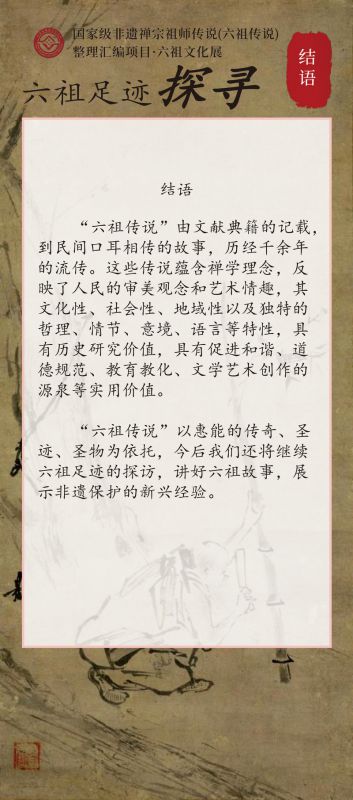 国家级非遗禅宗祖师传说(六祖传说)
整理汇编项目·六祖文化展
六祖足迹 探寻
结语
结语
“六祖传说”由文献典籍的记载，
到民间口耳相传的故事，历经千余年
的流传。这些传说蕴含禅学理念，反
映了人民的审美观念和艺术情趣，其
文化性、社会性、地域性以及独特的
哲理、情节、意境、语言等特性，具
有历史研究价值，具有促进和谐、道
德规范、教育教化、文学艺术创作的
源泉等实用价值。
“六祖传说”以惠能的传奇、圣
迹、圣物为依托，今后我们还将继续
六祖足迹的探访，讲好六祖故事，展
示非遗保护的新兴经验。